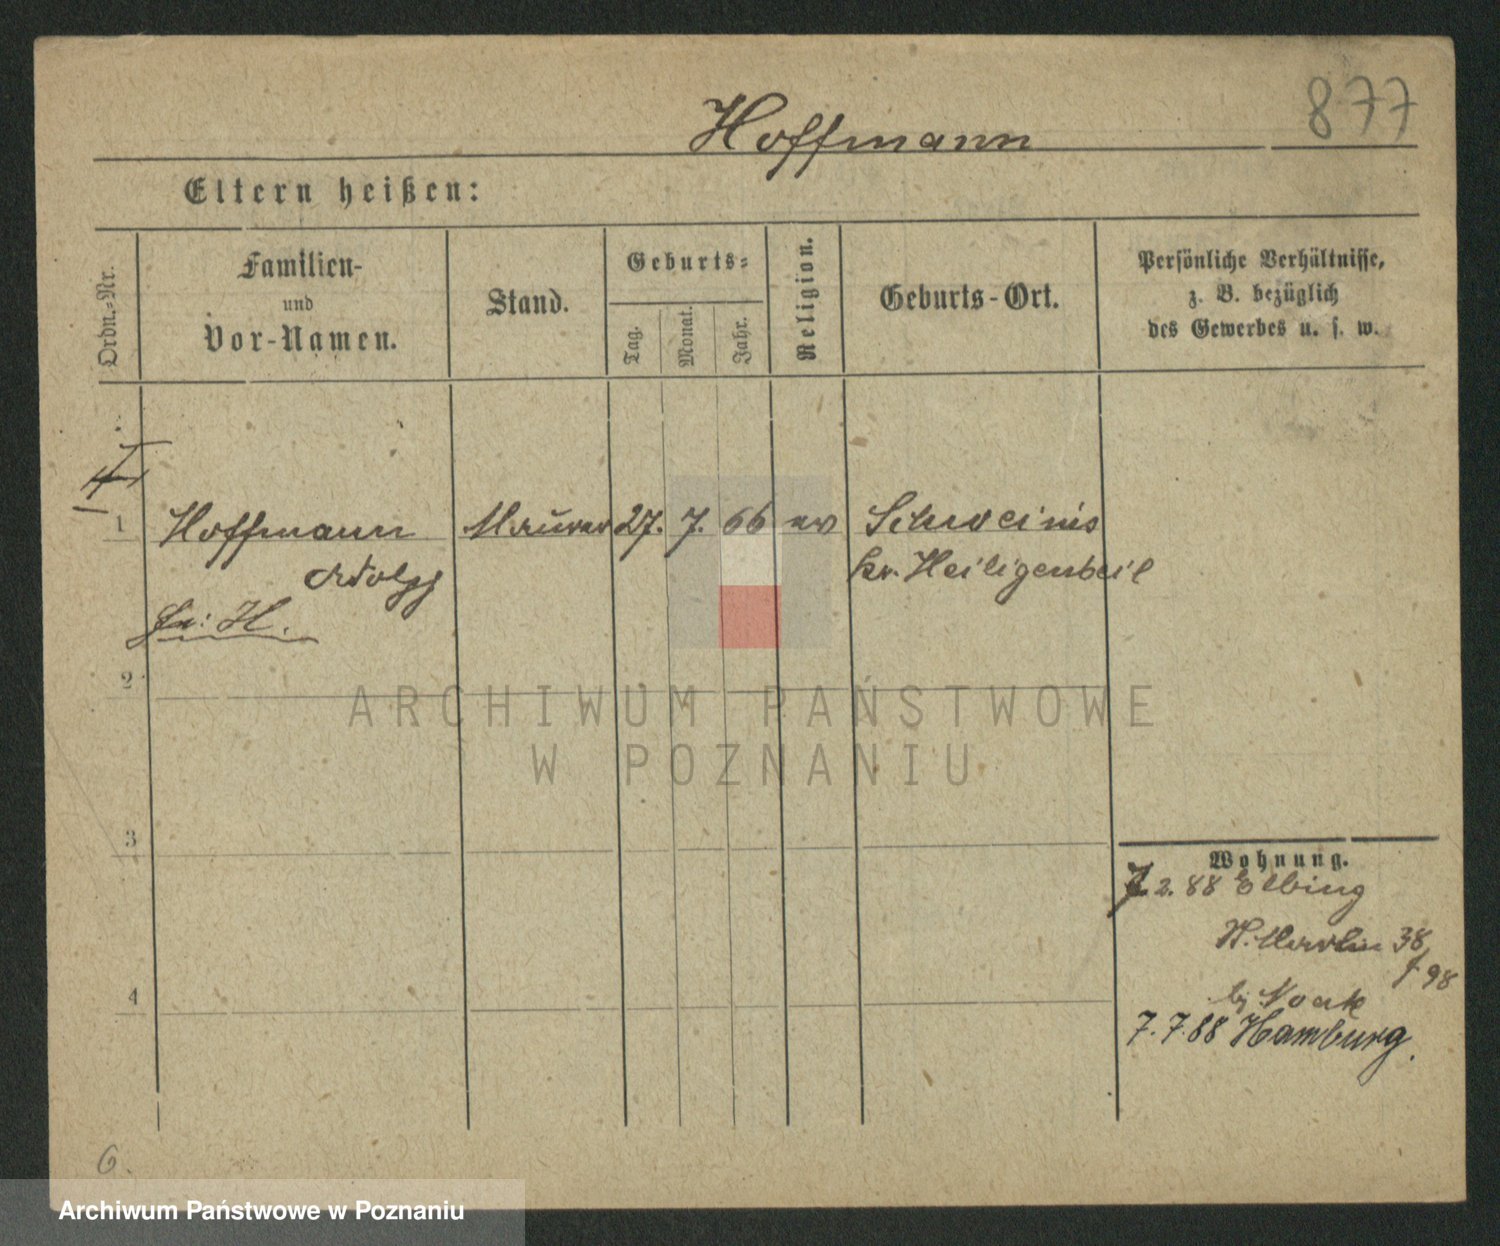 Hoffmann 877
Eltern heißen:
Ordn.-Nr.
Familien-
und
Vor-Namen.
Stand.
Geburts-
Tag.
Monat.
Jahr.
Religion.
Geburts-Ort.
Persönliche Verhältnisse,
z. B. bezüglich
des Gewerbes u. s. w.
1 Hoffmann Maurer 27. 7. 66 ev Schweinis
Adolf Kr. Heiligenbeil
H.
2
ARCHIWUM PAŃSTWOWE
W POZNANIU
3
Wohnung.
7. 2. 88 Elbing
38
98
4
7. 7. 88 Hamburg.
6.
Archiwum Państwowe w Poznaniu